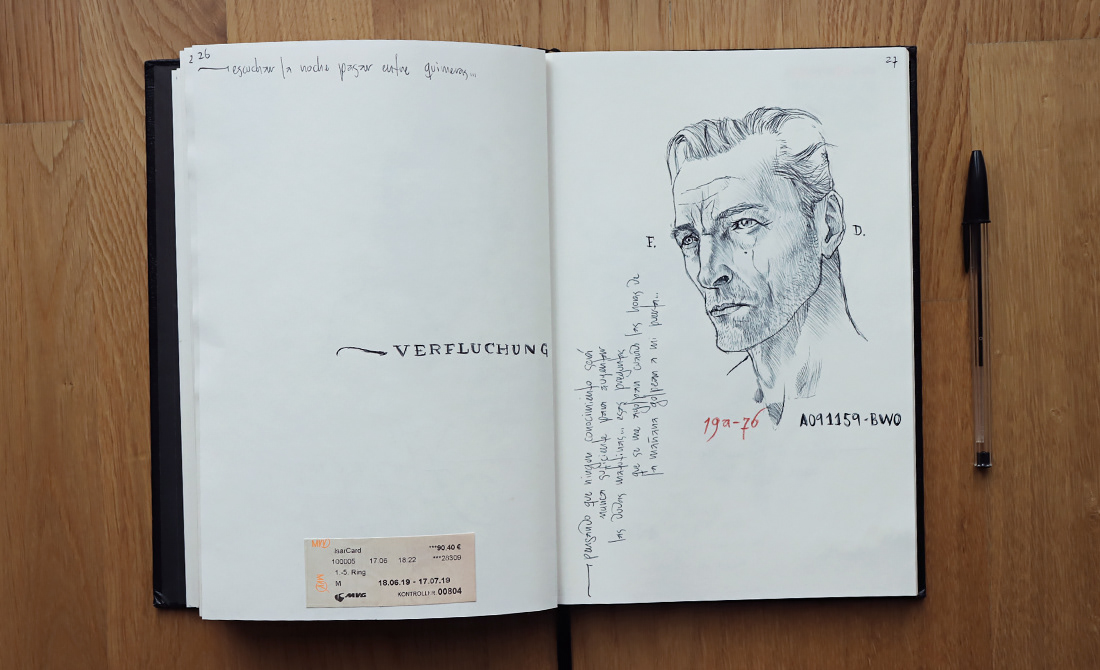 26
escuchar la noche pasar entre quimeras...
VERFLUCHUNG
MVV
IsarCard
***90.40 €
100005 17.06 18:22 ***28309
1.-5. Ring
MVG
M 18.06.19 - 17.07.19
MVG KONTROLL-R 00804
27
F. D.
pensando que ningún conocimiento será
nunca suficiente para
las dudas matutinas... esas preguntas
que se me agolpan cuando las horas de
la mañana golpean a mi puerta...
19a-76 A091159-BWO